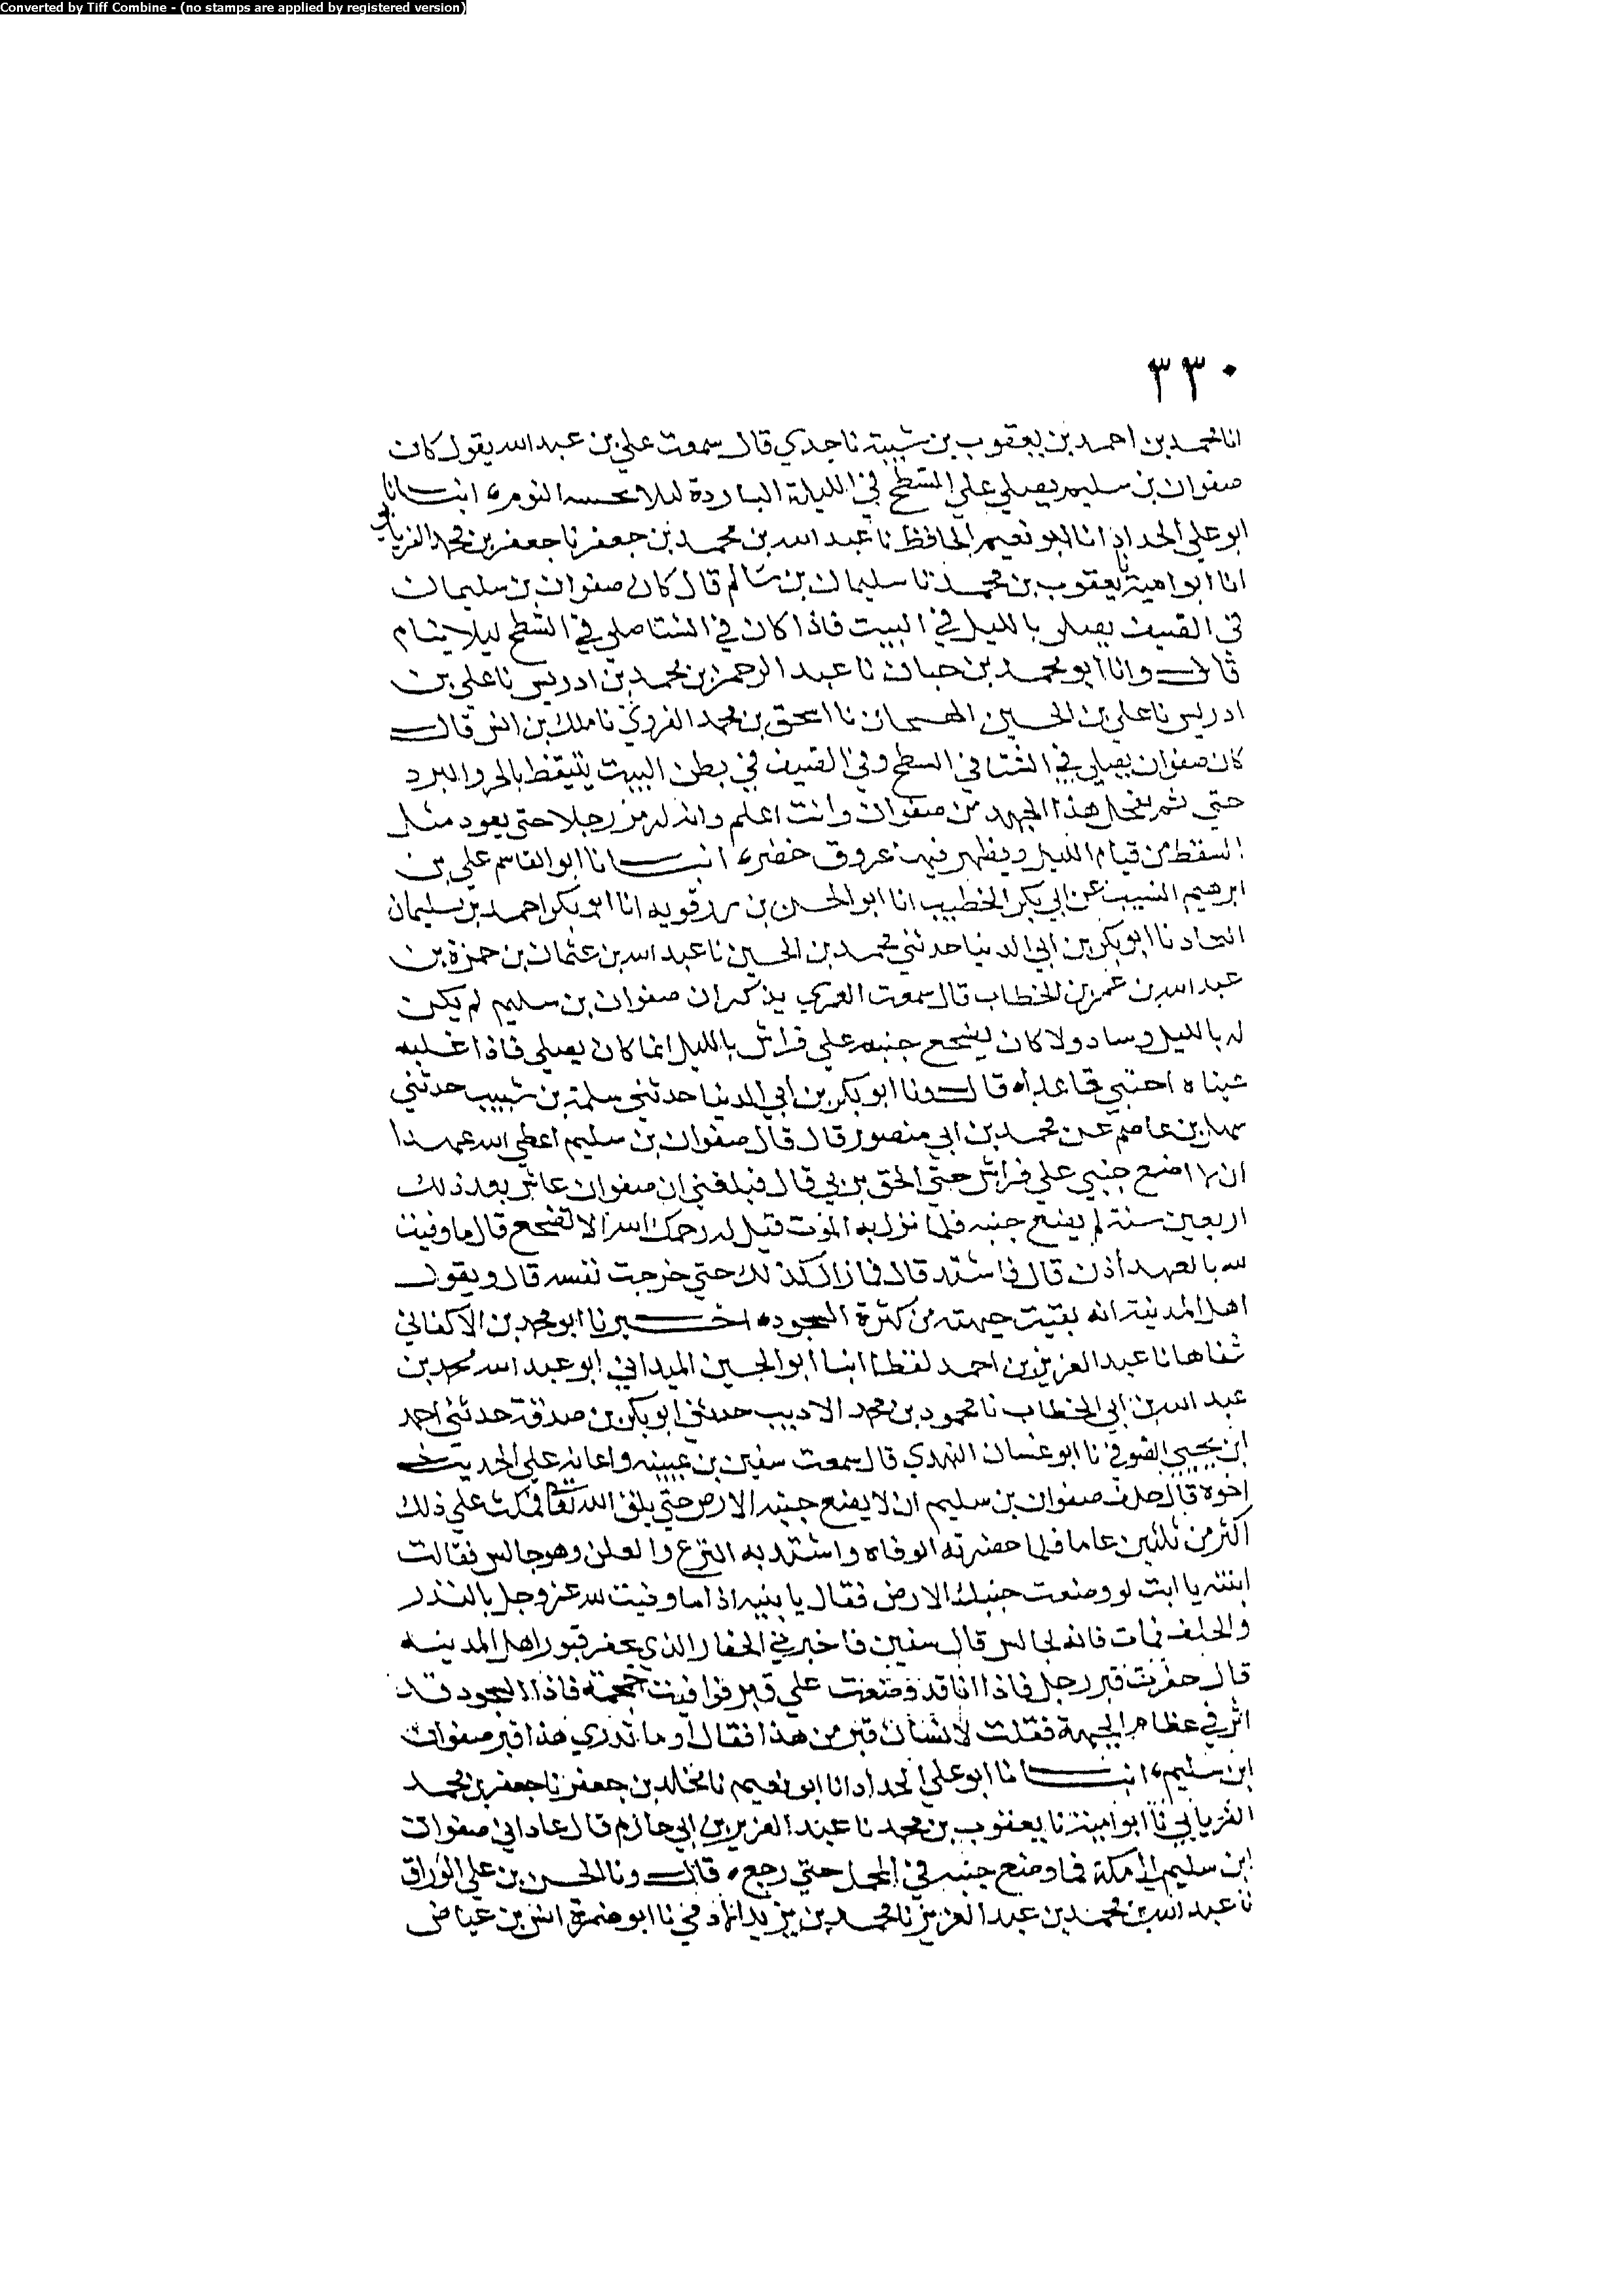 Converted by Tiff Combine - (no stamps are applied by registered version)
٣٣٠
انا محمد بن احمد بن يعقوب بن شيبة نا جدي قال سمعت علي بن عبد الله يقول كان
صفوان بن سليم يصلي علي السطح في الليلة الباردة ليلا النوم انبانا
ابو علي الحداد انا ابو نعيم الحافظ نا عبد الله بن محمد بن جعفر نا جعفر بن محمد الفريابي
انا ابو امية نا يعقوب بن محمد نا سليمان بن سالم قال كان صفوان بن سليمان
في الصيف يصلي بالليل في البيت فاذا كان في الشتا صلي في السطح ليلا ينام
قال وانا ابو محمد بن حبان نا عبد الرحمن بن محمد بن ادريس نا علي بن
ادريس نا علي بن الحسين نا اسحق بن محمد الفروي نا ملك بن انس قال
كان صفوان يصلي في الشتا في السطح وفي الصيف في بطن البيت يتيقظ بالحر والبرد
حتي ثم يقول هذا الجهد من صفوان وانت اعلم وانه لترم رجلا حتي يعود مثل
السقط من قيام الليل ويظهر فيها عروق خضر انبانا ابو القاسم علي بن
ابرهيم النسيب عن ابي بكر الخطيب انا ابو الحسن بن رزقويه انا ابو بكر احمد بن سليمان
النجاد نا ابو بكر بن ابي الدنيا حدثني محمد بن الحسين نا عبد الله بن عثمان بن حمزة بن
عبد الله بن عمر بن الخطاب قال سمعت العمري يذكر ان صفوان بن سليم لم يكن
له بالليل وساد ولا كان يضجع جنبه علي فراش بالليل انما كان يصلي فاذا غلبه
عيناه احتبي قاعدا قال ونا ابو بكر بن ابي الدنيا حدثني سلمة بن شبيب حدثني
سهل بن عاصم عن محمد بن ابي منصور قال قال صفوان بن سليم اعطي الله عهدا
ان لا اضع جنبي علي فراش حتي الحق بربي قال فبلغني ان صفوان عاش بعد ذلك
اربعين سنة لم يضع جنبه فلما نزل به الموت قيل له رحمك الله الا تضجع قال ما وفيت
لله بالعهد اذن قال فاشتد قال فما زال كذلك حتي خرجت نفسه قال ويقول
اهل المدينة انه بقيت جبهته من كثرة السجود اخبرنا ابو محمد بن الاكفاني
شفاها نا عبد العزيز بن احمد لفظا انبا ابو الحسين الميداني ابو عبد الله محمد بن
عبد الله بن ابي الخطاب نا محمود بن محمد الاديب حدثني ابو بكر بن صدقة حدثني احمد
ابن يحيي الصوفي نا ابو غسان النهدي قال سمعت سفين بن عيينه واعانه علي الحديث
اخوه قال حلف صفوان بن سليم ان لا يضع جنبه الارض حتي يلقي الله تعالى فمكث علي ذلك
اكثر من ثلثين عاما فلما حضرته الوفاه واشتد به النزع والعلز وهو جالس فقالت
ابنته يا ابت لو وضعت جنبك الارض فقال يا بنيه اذا ما وفيت لله عز وجل بالنذر
والحلف فمات فانه لجالس قال سفين فاخبرني الحفار الذي يحفر قبور اهل المدينه
قال حفرت قبر رجل فاذا انا قد وضعت علي قبر فوافيت جمجمة فاذا السجود قد
اثر في عظام الجبهة فقلت لانسان قبر من هذا فقال او ما تدري هذا قبر صفوان
ابن سليم انبانا ابو علي الحداد انا ابو نعيم نا مخلد بن جعفر نا جعفر بن محمد
الفريابي نا ابو امية نا يعقوب بن محمد نا عبد العزيز بن ابي حازم قال عادلني صفوان
ابن سليم الي مكة فما وضع جنبه في المحمل حتي رجع قال ونا الحسن بن علي الوراق
نا عبد الله بن محمد بن عبد العزيز نا محمد بن يزيد الادمي نا ابو ضمرة انس بن عياض